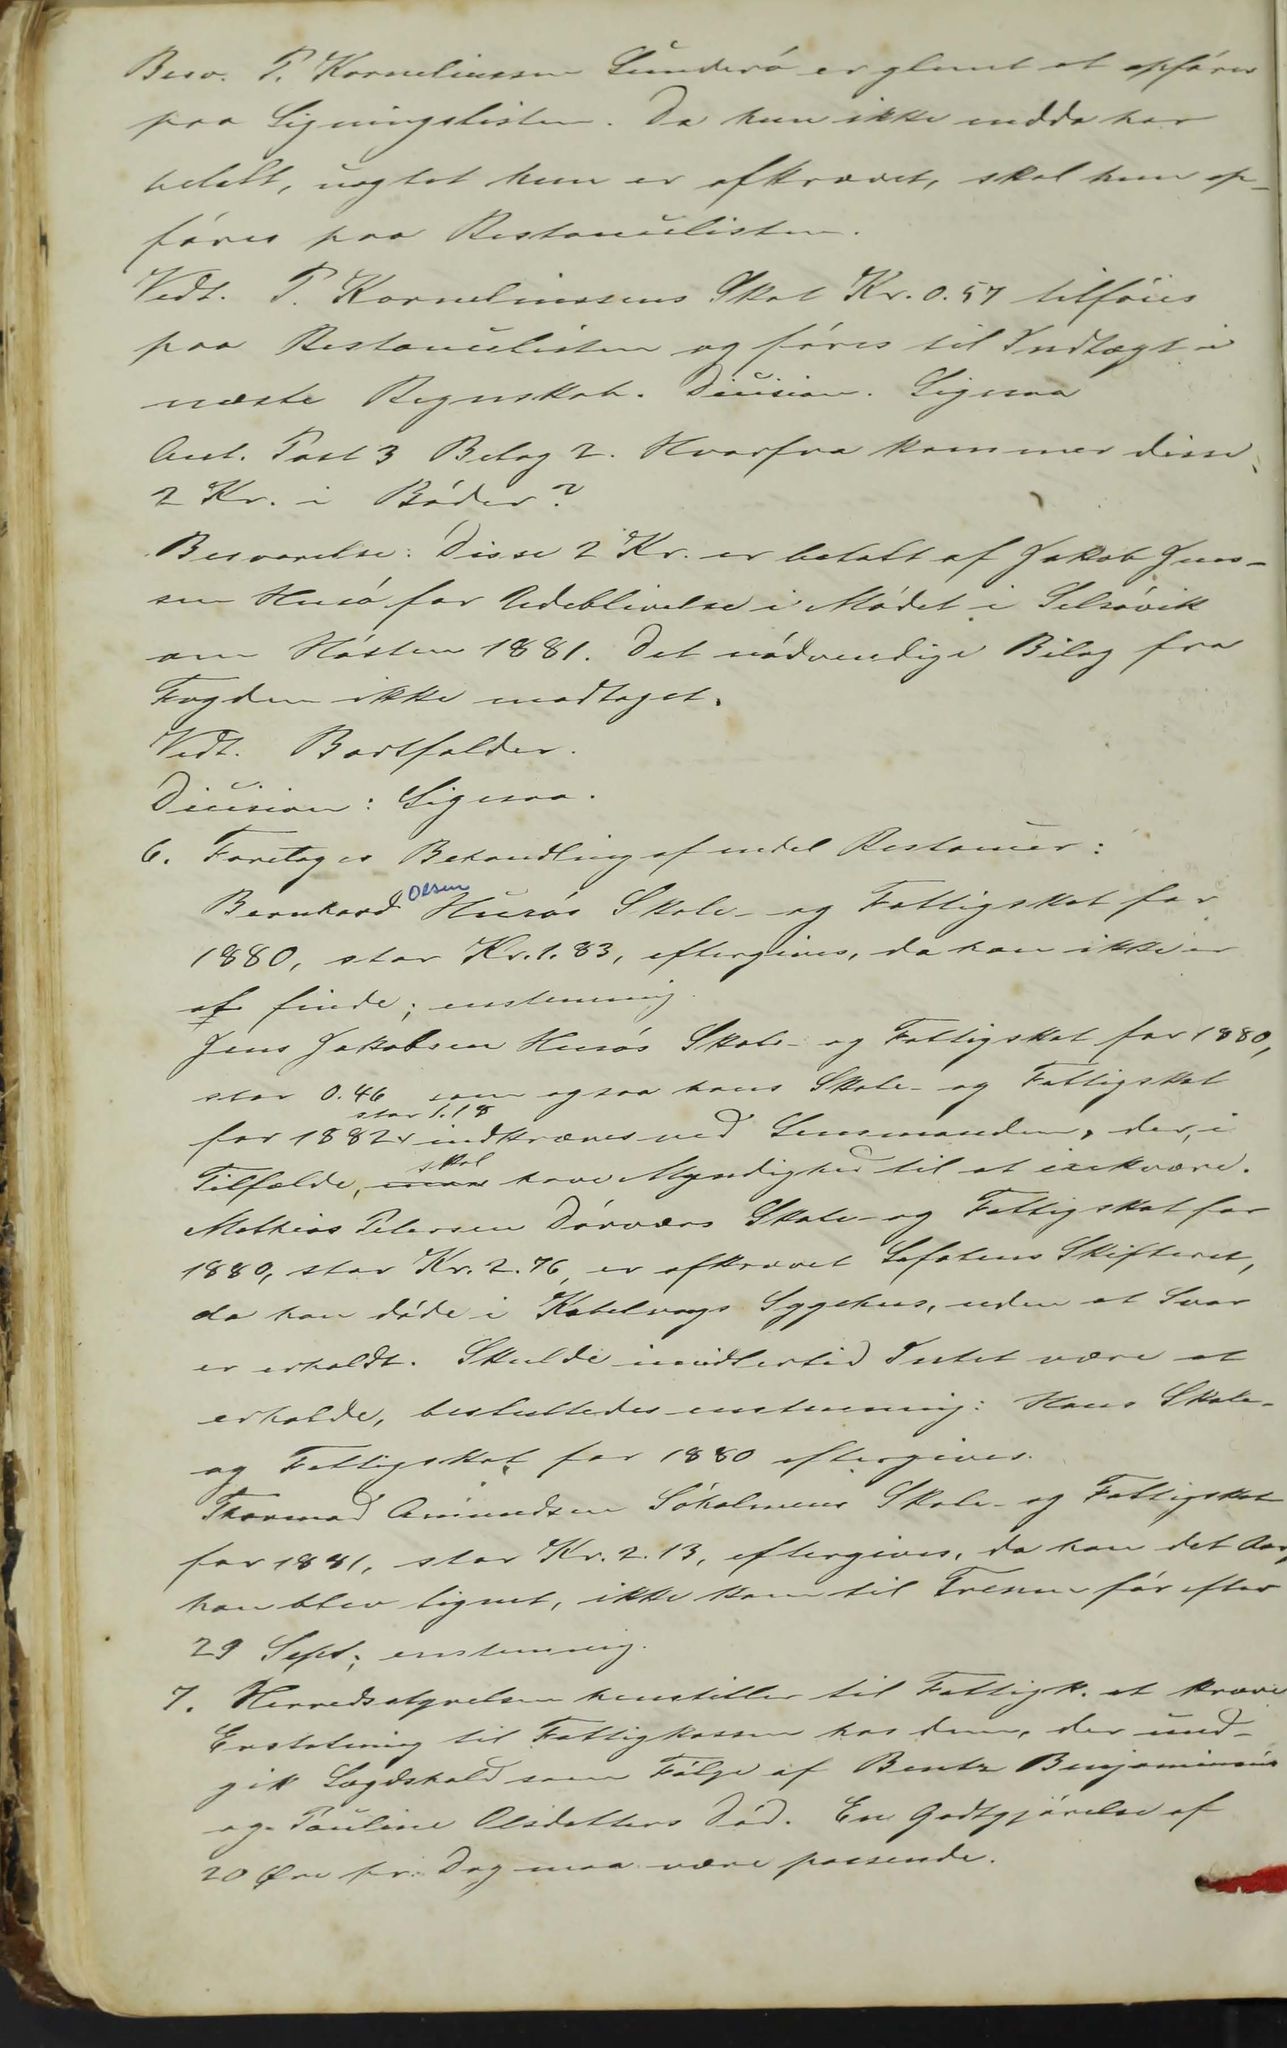 Besv. P. Korneliussen Sunderö er glemt at opföres
paa Ligningslisten. Da hun ikke endda har
betalt, uagtet hun er afkrævet, skal hun op-
föres paa Restancelisten.
Vedt. P. Korneliussens Skat Kr. 0.57 tilföies
paa Restancelisten og föres til Indtægt i
næste Regnskab. Decision. Ligesaa
Ant. Post 3 Belag 2. Hvorfra kommer disse
2 Kr. i Böder?
Besvarelse: Disse 2 Kr. er betalt af Jakob Jens-
sen Husö for Udeblivelse i Mödet i Selsövik
om Hösten 1881. Det nödvendige Bilag fra
Fogden ikke modtaget.
Vedt. Bortfalder.
Decision: Ligesaa.
6. Foretoges Behandling af endel Restancer:
Bernhard Olsen Husös Skole- og Fattigskat for
1880, stor Kr. 1.83, eftergives, da han ikke er
at finde; enstemmig.
Jens Jakobsen Husös Skole- og Fattigskat for 1880,
stor 0.46 som ogsaa hans Skole- og Fattigskat
for 1882 stor 1.18 indkræves ved Lensmanden, der, i
Tilfælde, skal have Myndighed til at inkvære.
Mathias Petersen Dörværs Skole- og Fattigskat for
1880, stor Kr. 2.76, er afkrævet Lofotens Skifteret,
da han döde i Kabelvaags Sygehus, uden at Svar
er erholdt. Skulde imidlertid Intet være at
erholde, besluttedes enstemmig: Hans Skole-
og Fattigskat for 1880 eftergives.
Thormod Amundsen Sökolmens Skole- og Fattigskat
for 1881, stor Kr. 2.13, eftergives, da han det Aar,
han blev lignet, ikke kom til Trænen för efter
29 Sept.; enstemmig.
7. Herredsstyrelsen henstiller til Fattigk. at kræve
Erstatning til Fattigkassen hos dem, der und-
gik Lægdshold som Fölge af Bentz Benjaminsens
og Pauline Olsdatters Död. En Godtgjörelse af
20 Øre pr. Dag maa være passende.